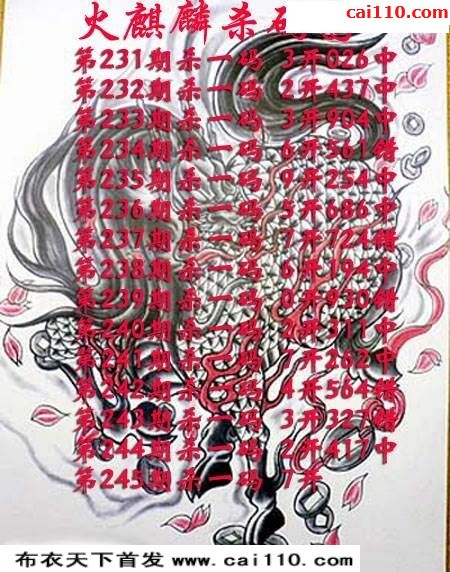 cai110.com
火麒麟杀码
第231期杀一码 3开026中
第232期杀一码 2开437中
第233期杀一码 3开904中
第234期杀一码 6开561错
第235期杀一码 9开254中
第236期杀一码 5开686中
第237期杀一码 7开724错
第238期杀一码 6开194中
第239期杀一码 0开930错
第240期杀一码 2开311中
第241期杀一码 1开262中
第242期杀一码 4开564错
第243期杀一码 3开327错
第244期杀一码 2开417中
第245期杀一码 7开
布衣天下首发 www.cai110.com